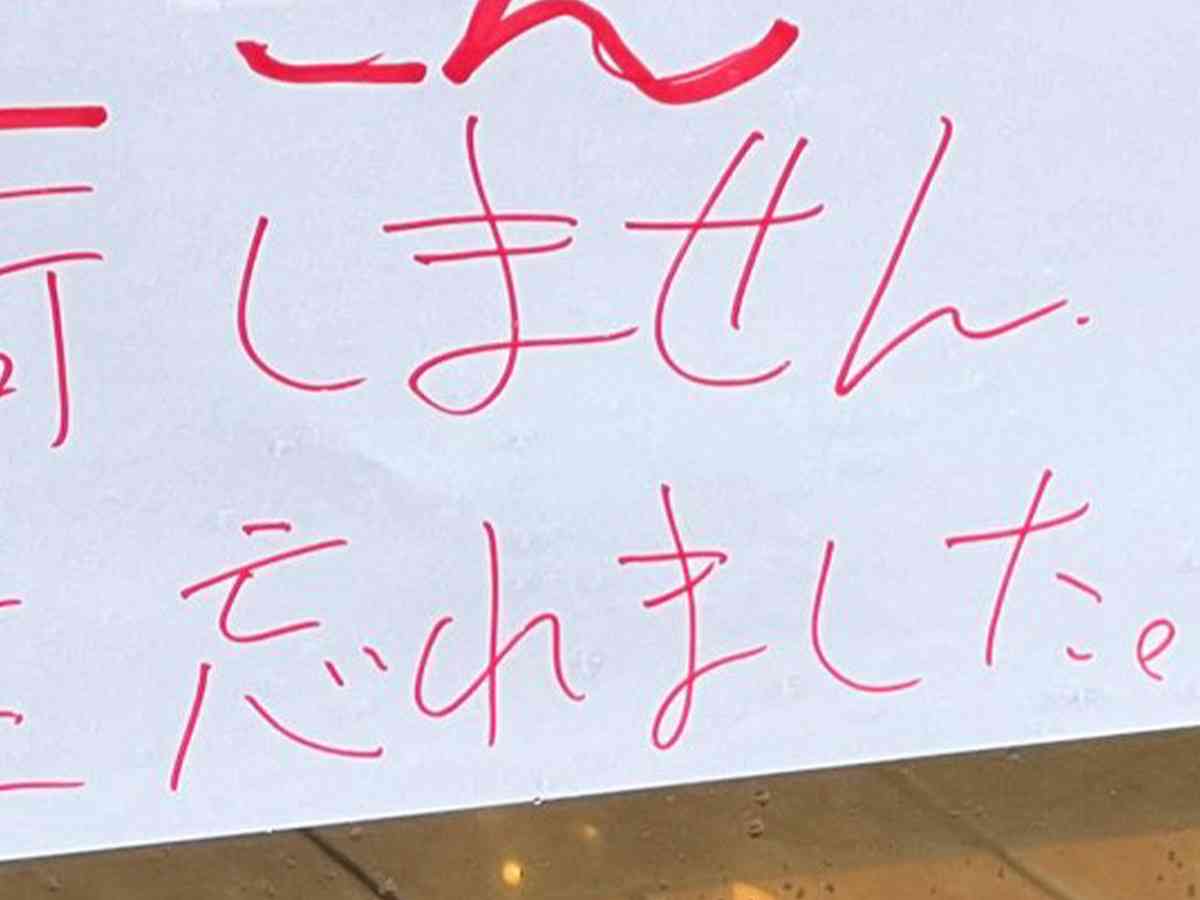 しません.
忘れました。